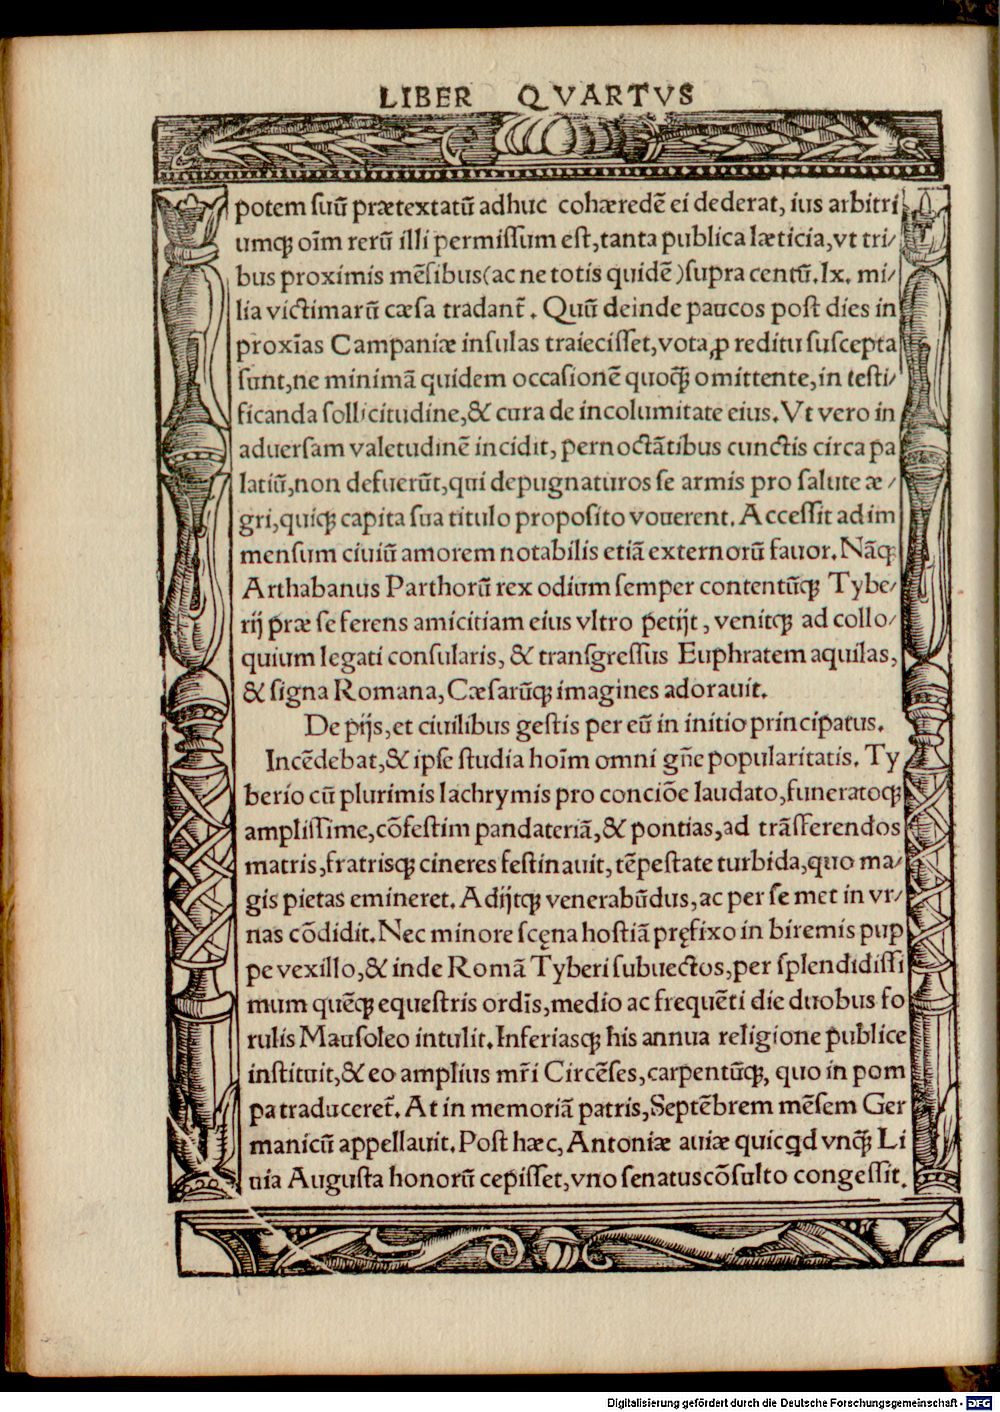 LIBER QVARTVS
potem suũ prætextatũ adhuc cohæredẽ ei dederat, ius arbitri
umq; oĩm rerũ illi permissum est, tanta publica læticia, vt tri/
bus proximis mẽsibus (ac ne totis quidẽ) supra centũ. lx. mi/
lia victimarũ cæsa tradant̃. Quũ deinde paucos post dies in
proxĩas Campaniæ insulas traiecisset, vota ꝓ reditu suscepta
sunt, ne minimã quidem occasionẽ quoq̃; omittente, in testi/
ficanda sollicitudine, & cura de incolumitate eius. Vt vero in
aduersam valetudinẽ incidit, pernoctãtibus cunctis circa pa
latiũ, non defuerũt, qui depugnaturos se armis pro salute æ/
gri, quiq; capita sua titulo proposito vouerent. Accessit ad im
mensum ciuiũ amorem notabilis etiã externorũ fauor. Nãq;
Arthabanus Parthorũ rex odium semper contentũq; Tybe/
rij præ se ferens amicitiam eius vltro petijt, venitq; ad collo/
quium legati consularis, & transgressus Euphratem aquilas,
& signa Romana, Cæsarũq; imagines adorauit.
De pijs, et ciuilibus gestis per eũ in initio principatus.
Incẽdebat, & ipse studia hoĩm omni gñe popularitatis. Ty
berio cũ plurimis lachrymis pro conciõe laudato, funeratoq;
amplissime, cõfestim pandateriã, & pontias, ad trãsferendos
matris, fratrisq; cineres festinauit, tẽpestate turbida, quo ma/
gis pietas emineret. Adijtq; venerabũdus, ac per se met in vr/
nas cõdidit. Nec minore scęna hostiã pręfixo in biremis pup
pe vexillo, & inde Romã Tyberi subuectos, per splendidissi
mum quẽq; equestris ordĩs, medio ac frequẽti die duobus fo
rulis Mausoleo intulit. Inferiasq; his annua religione publice
instituit, & eo amplius mr̃i Circẽses, carpentũq;, quo in pom
pa traduceret̃. At in memoriã patris, Septẽbrem mẽsem Ger
manicũ appellauit. Post hæc, Antoniæ auiæ quicꝗd vnq̃; Li
uia Augusta honorũ cepisset, vno senatuscõsulto congessit.
Digitalisierung gefördert durch die Deutsche Forschungsgemeinschaft - DFG